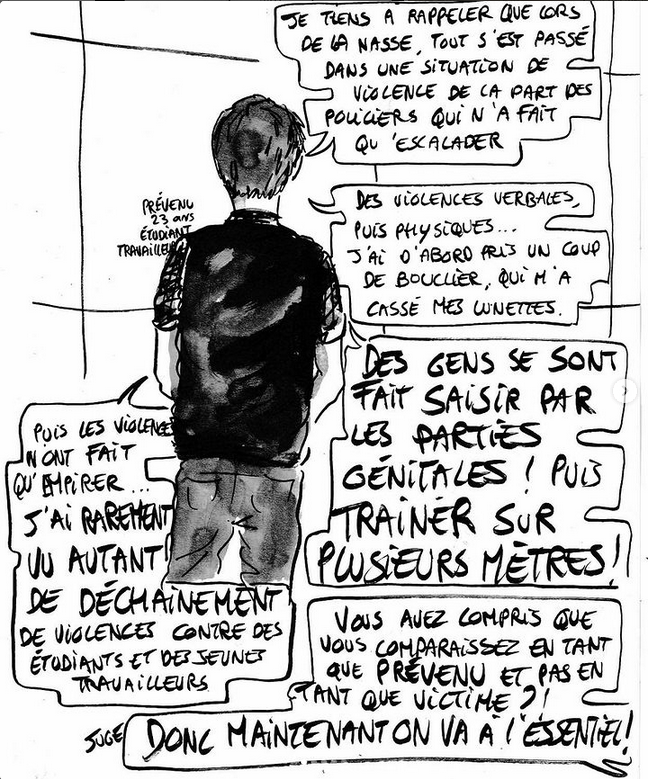 JE TIENS A RAPPELER QUE LORS
DE LA NASSE, TOUT S'EST PASSÉ
DANS UNE SITUATION DE
VIOLENCE DE LA PART DES
POLICIERS QUI N'A FAIT
QU'ESCALADER
PRÉVENU
23 ans
ÉTUDIANT
TRAVAILLEUR
DES VIOLENCES VERBALES,
PUIS PHYSIQUES...
J'AI D'ABORD PRIS UN COUP
DE BOUCLIER, QUI M'A
CASSÉ MES LUNETTES.
DES GENS SE SONT
FAIT SAISIR PAR
LES PARTIES
GÉNITALES ! PUIS
TRAÎNER SUR
PLUSIEURS MÈTRES !
PUIS LES VIOLENCES
N'ONT FAIT
QU'EMPIRER...
J'AI RAREMENT
VU AUTANT
DE DÉCHAÎNEMENT
DE VIOLENCES CONTRE DES
ÉTUDIANTS ET DES JEUNES
TRAVAILLEURS
VOUS AVEZ COMPRIS QUE
VOUS COMPARAISSEZ EN TANT
QUE PRÉVENU ET PAS EN
TANT QUE VICTIME ?!
JUGE
DONC MAINTENANT ON VA À l'ESSENTIEL!